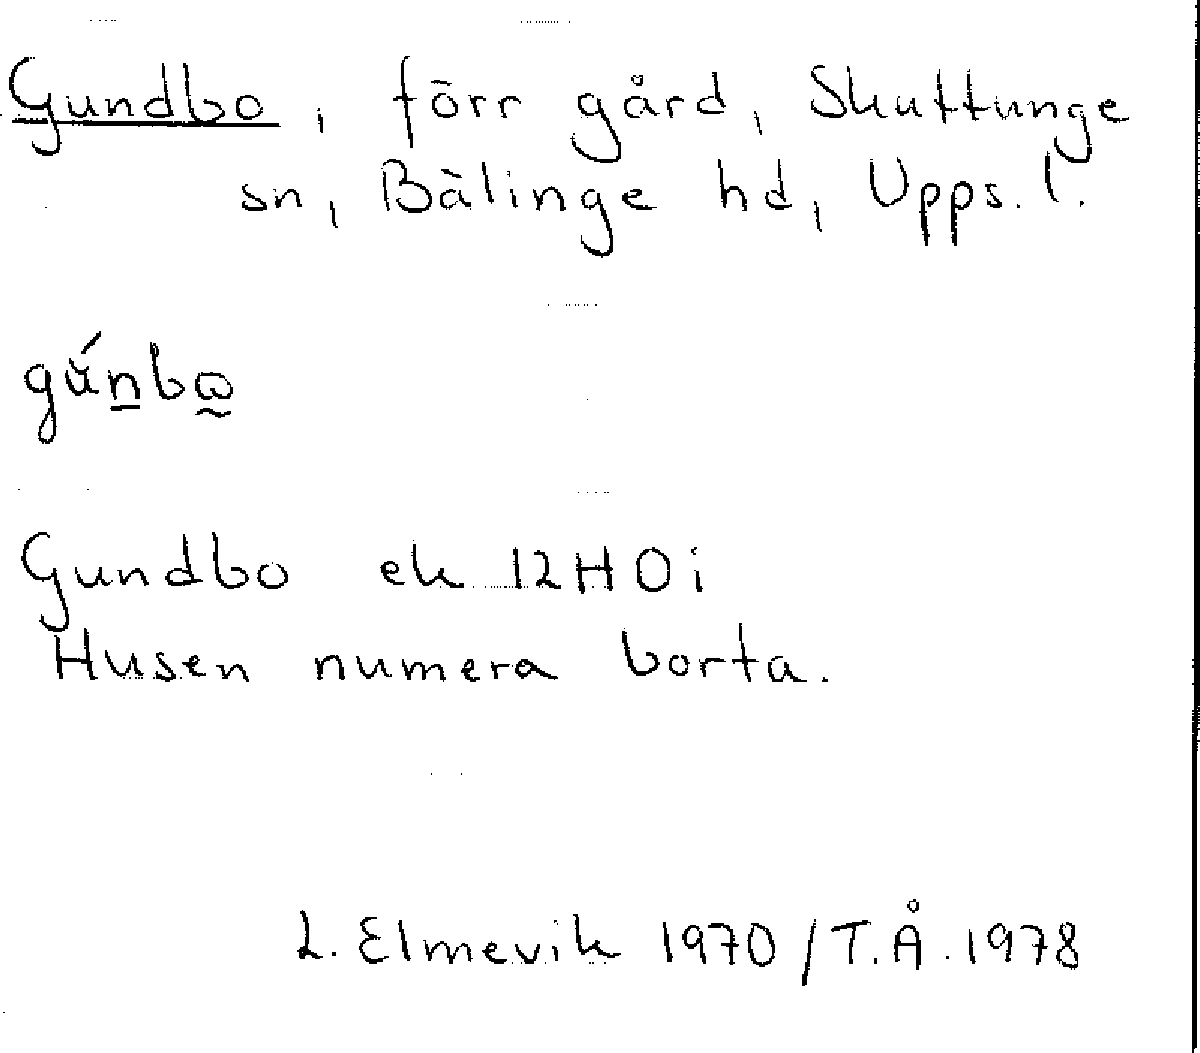 Gundbo, förr gård, Skuttunge
sn, Bälinge hd, Upps. l.
Gundbo ek 12H0i
Husen numera borta.
L. Elmevik 1970/T.Å. 1978